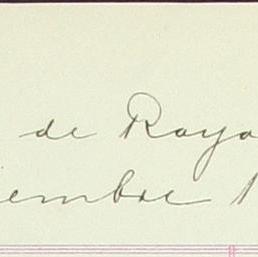 de Raya
iembre 1